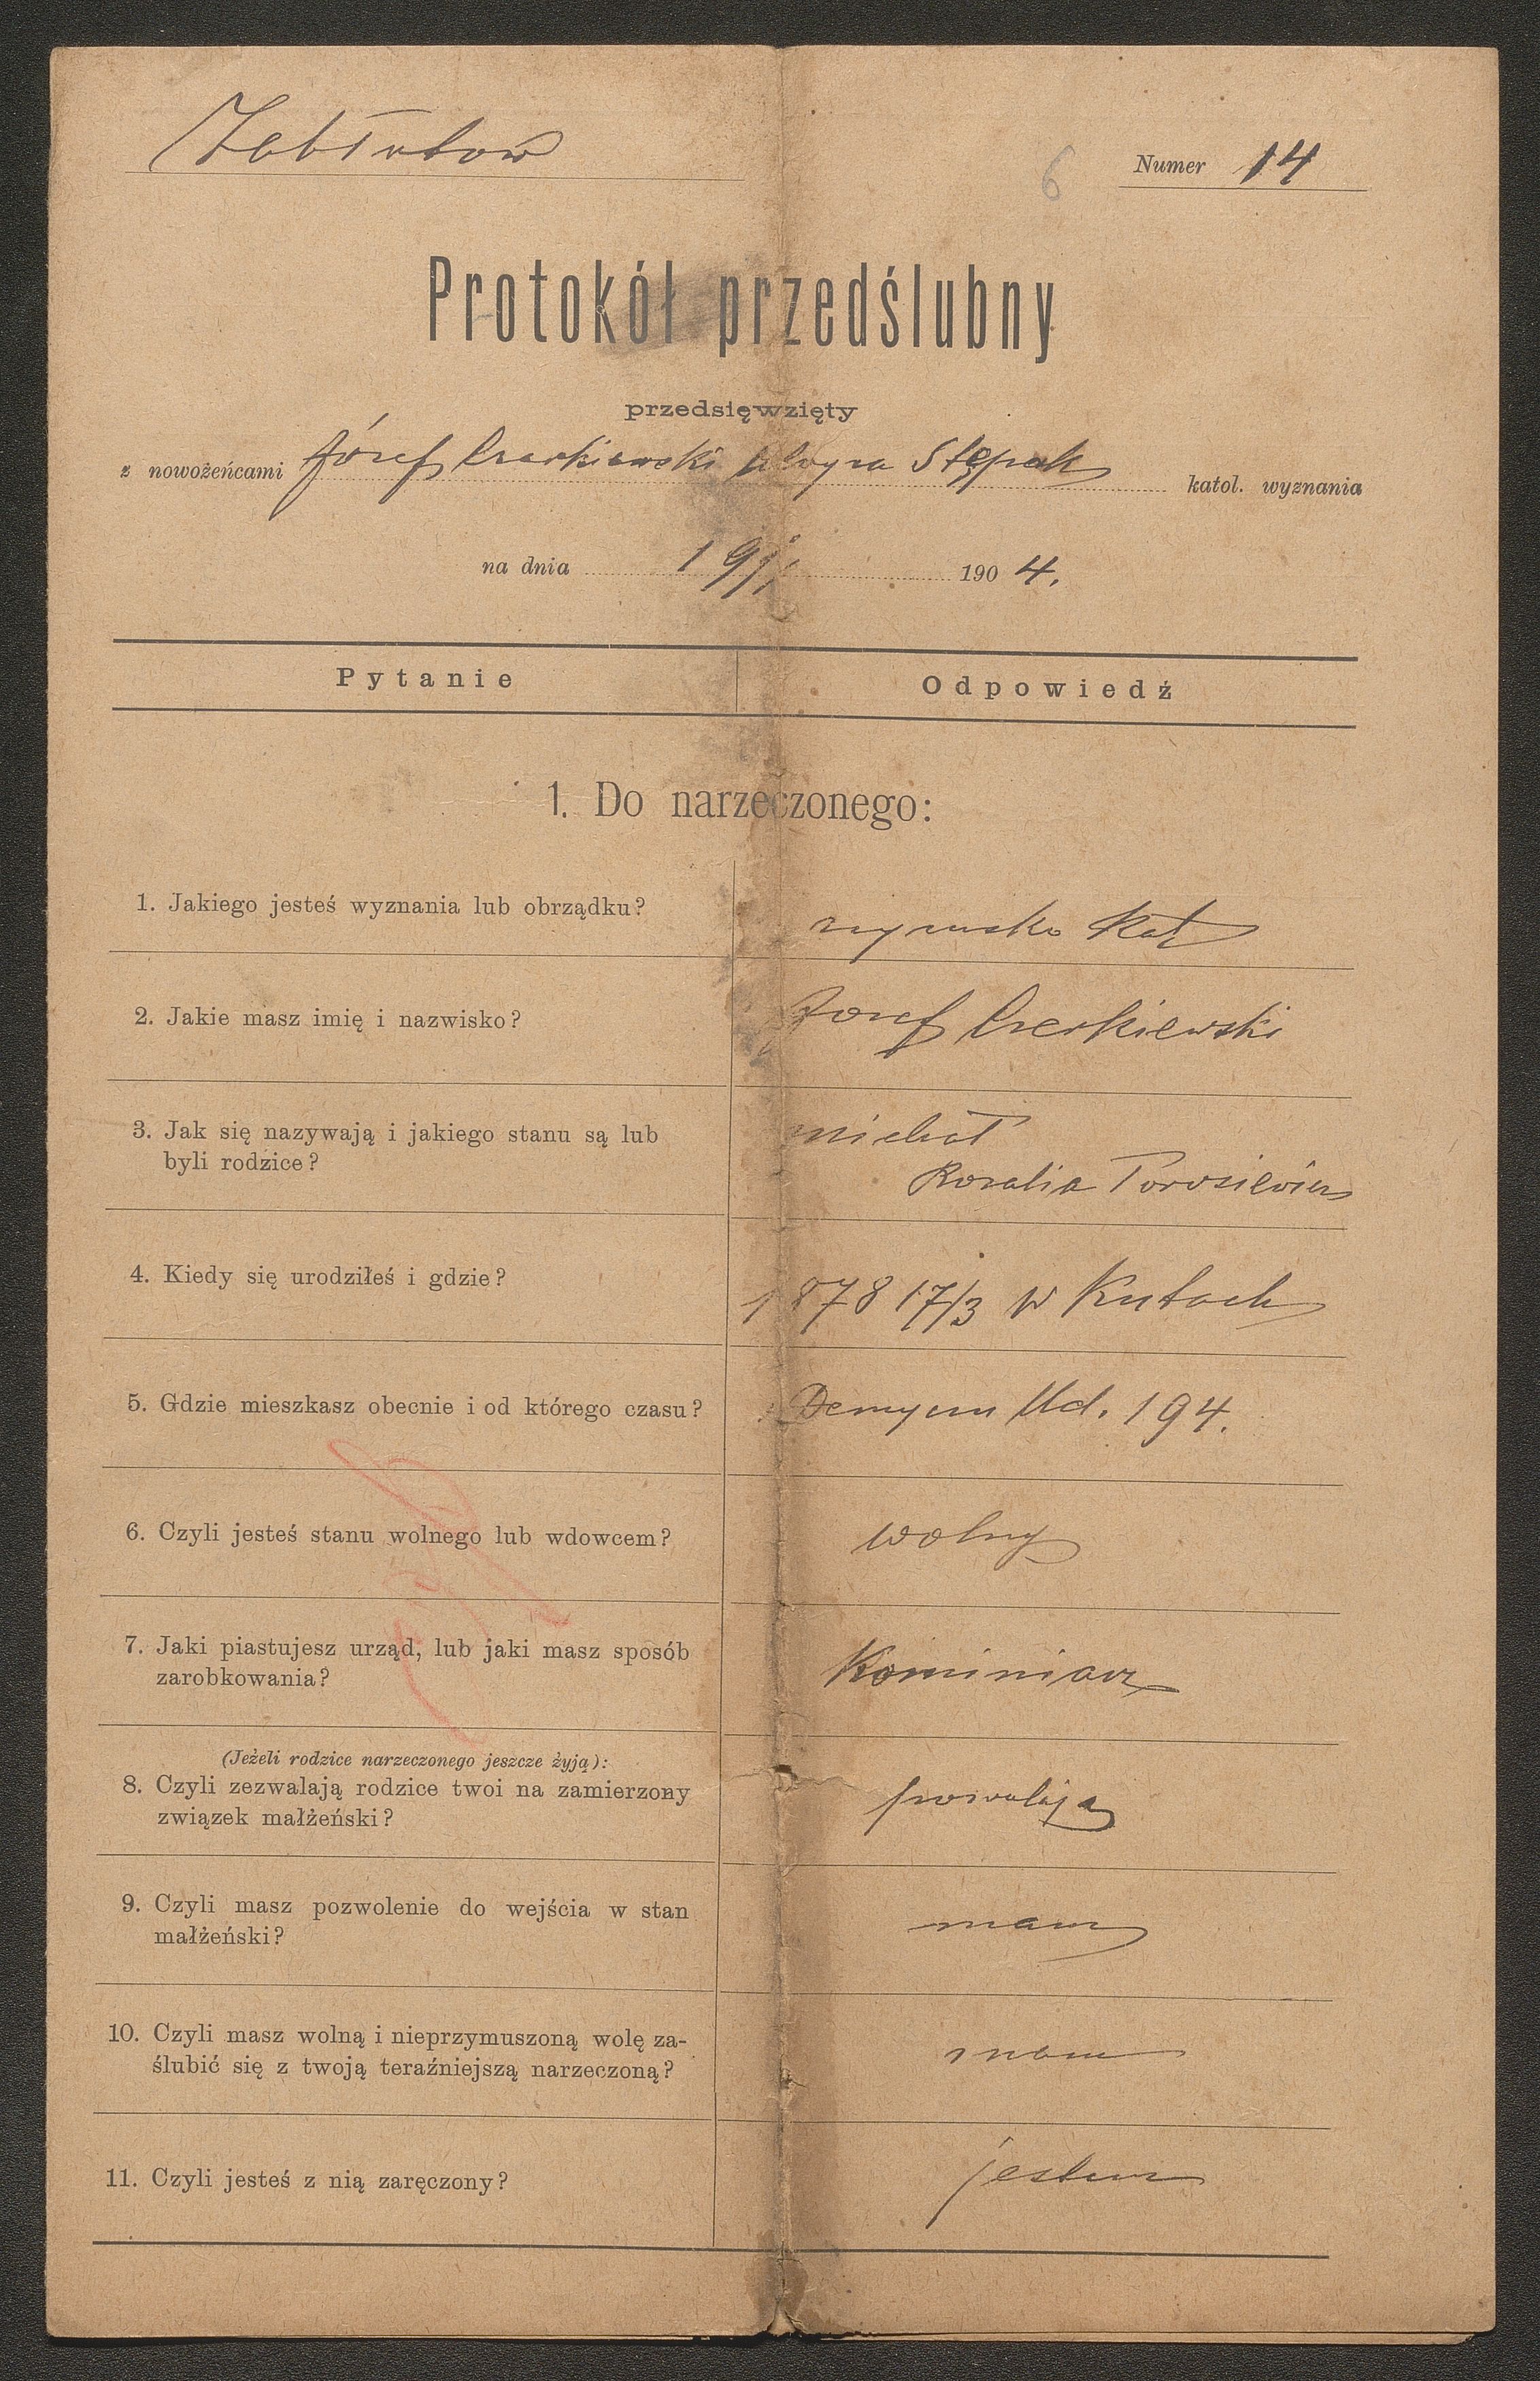 Zabłotow
6 Numer 14
Protokół przedślubny
przedsięwzięty
z nowożeńcami Józef Czerkiewski Stępak katol. wyznania
na dnia 1904.
Pytanie Odpowiedź
1. Do narzeczonego:
1. Jakiego jesteś wyznania lub obrządku?
rzymsko kat
2. Jakie masz imię i nazwisko?
Jozef Czerkiewski
3. Jak się nazywają i jakiego stanu są lub
byli rodzice?
Michał
Rozalia Torosiewicz
4. Kiedy się urodziłeś i gdzie?
1878 17/3 w Kutach
5. Gdzie mieszkasz obecnie i od którego czasu?
Demycze Nd. 194.
6. Czyli jesteś stanu wolnego lub wdowcem?
wolny
7. Jaki piastujesz urząd, lub jaki masz sposób
zarobkowania?
Kominiarz
(Jeżeli rodzice narzeczonego jeszcze żyją):
8. Czyli zezwalają rodzice twoi na zamierzony
związek małżeński?
9. Czyli masz pozwolenie do wejścia w stan
małżeński?
mam
10. Czyli masz wolną i nieprzymuszoną wolę za-
ślubić się z twoją teraźniejszą narzeczoną?
mam
11. Czyli jesteś z nią zaręczony?
jestem